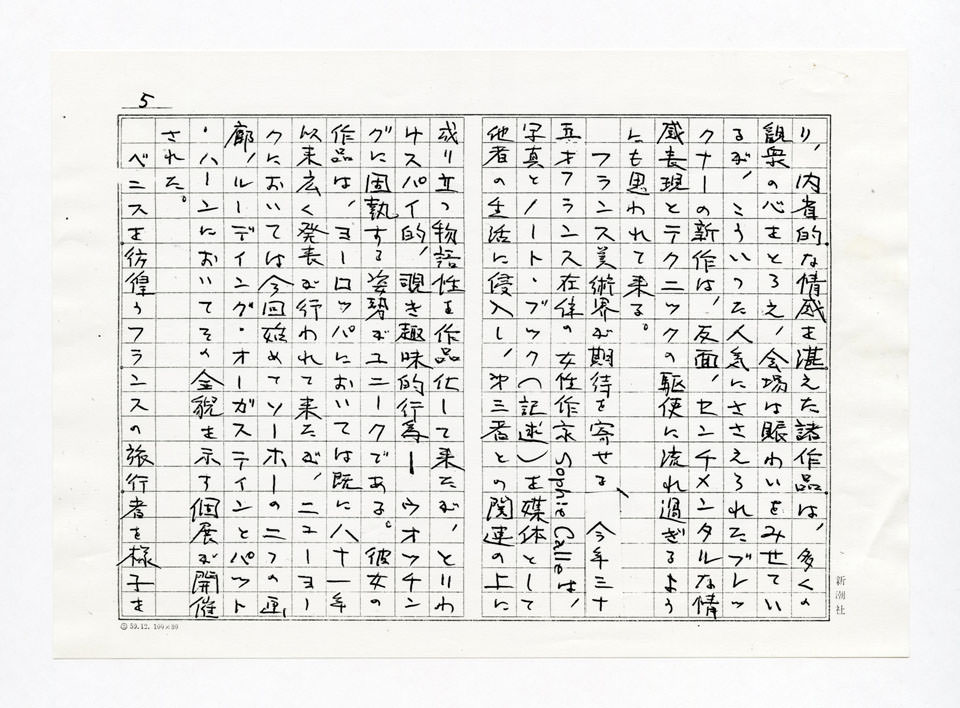 5
り、内省的な情感を湛えた諸作品は、多くの
観衆の心をとらえ、会場は賑わいをみせてい
るが、こういった人気にささえられたブレッ
クナーの新作は、反面、センチメンタルな情
感表現とテクニックの駆使に流れ過ぎるよう
にも思われて来る。
フランス美術界が期待を寄せる、今年三十
五才フランス在住の女性作家Sophie Calleは、
写真とノート・ブック（記述）を媒体として
他者の生活に侵入し、第三者との関連の上に
成り立つ物語性を作品化して来たが、とりわ
けスパイ的、覗き趣味的行為ー ウオッチン
グに固執する姿勢がユニークである。彼女の
作品は、ヨーロッパにおいては既に八十一年
以来広く発表が行われて来たが、ニューヨー
クにおいては今回始めてソーホーの二つの画
廊、ルーディング・オーガスティンとパット
・ハーンにおいてその全貌を示す個展が開催
された。
ベニスを彷徨うフランスの旅行者を様子を
新潮社
59.12. 100×80